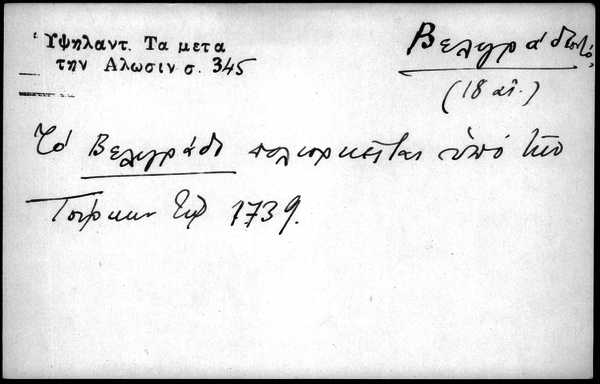 Ὑψηλαντ. Τα μετα
την Αλωσιν σ. 345
Βελιγράδιον τό,
(18 αἰ.)
Τό Βελιγράδι πολιορκεῖται ὑπό τῶν
Τούρκων τῷ 1739.